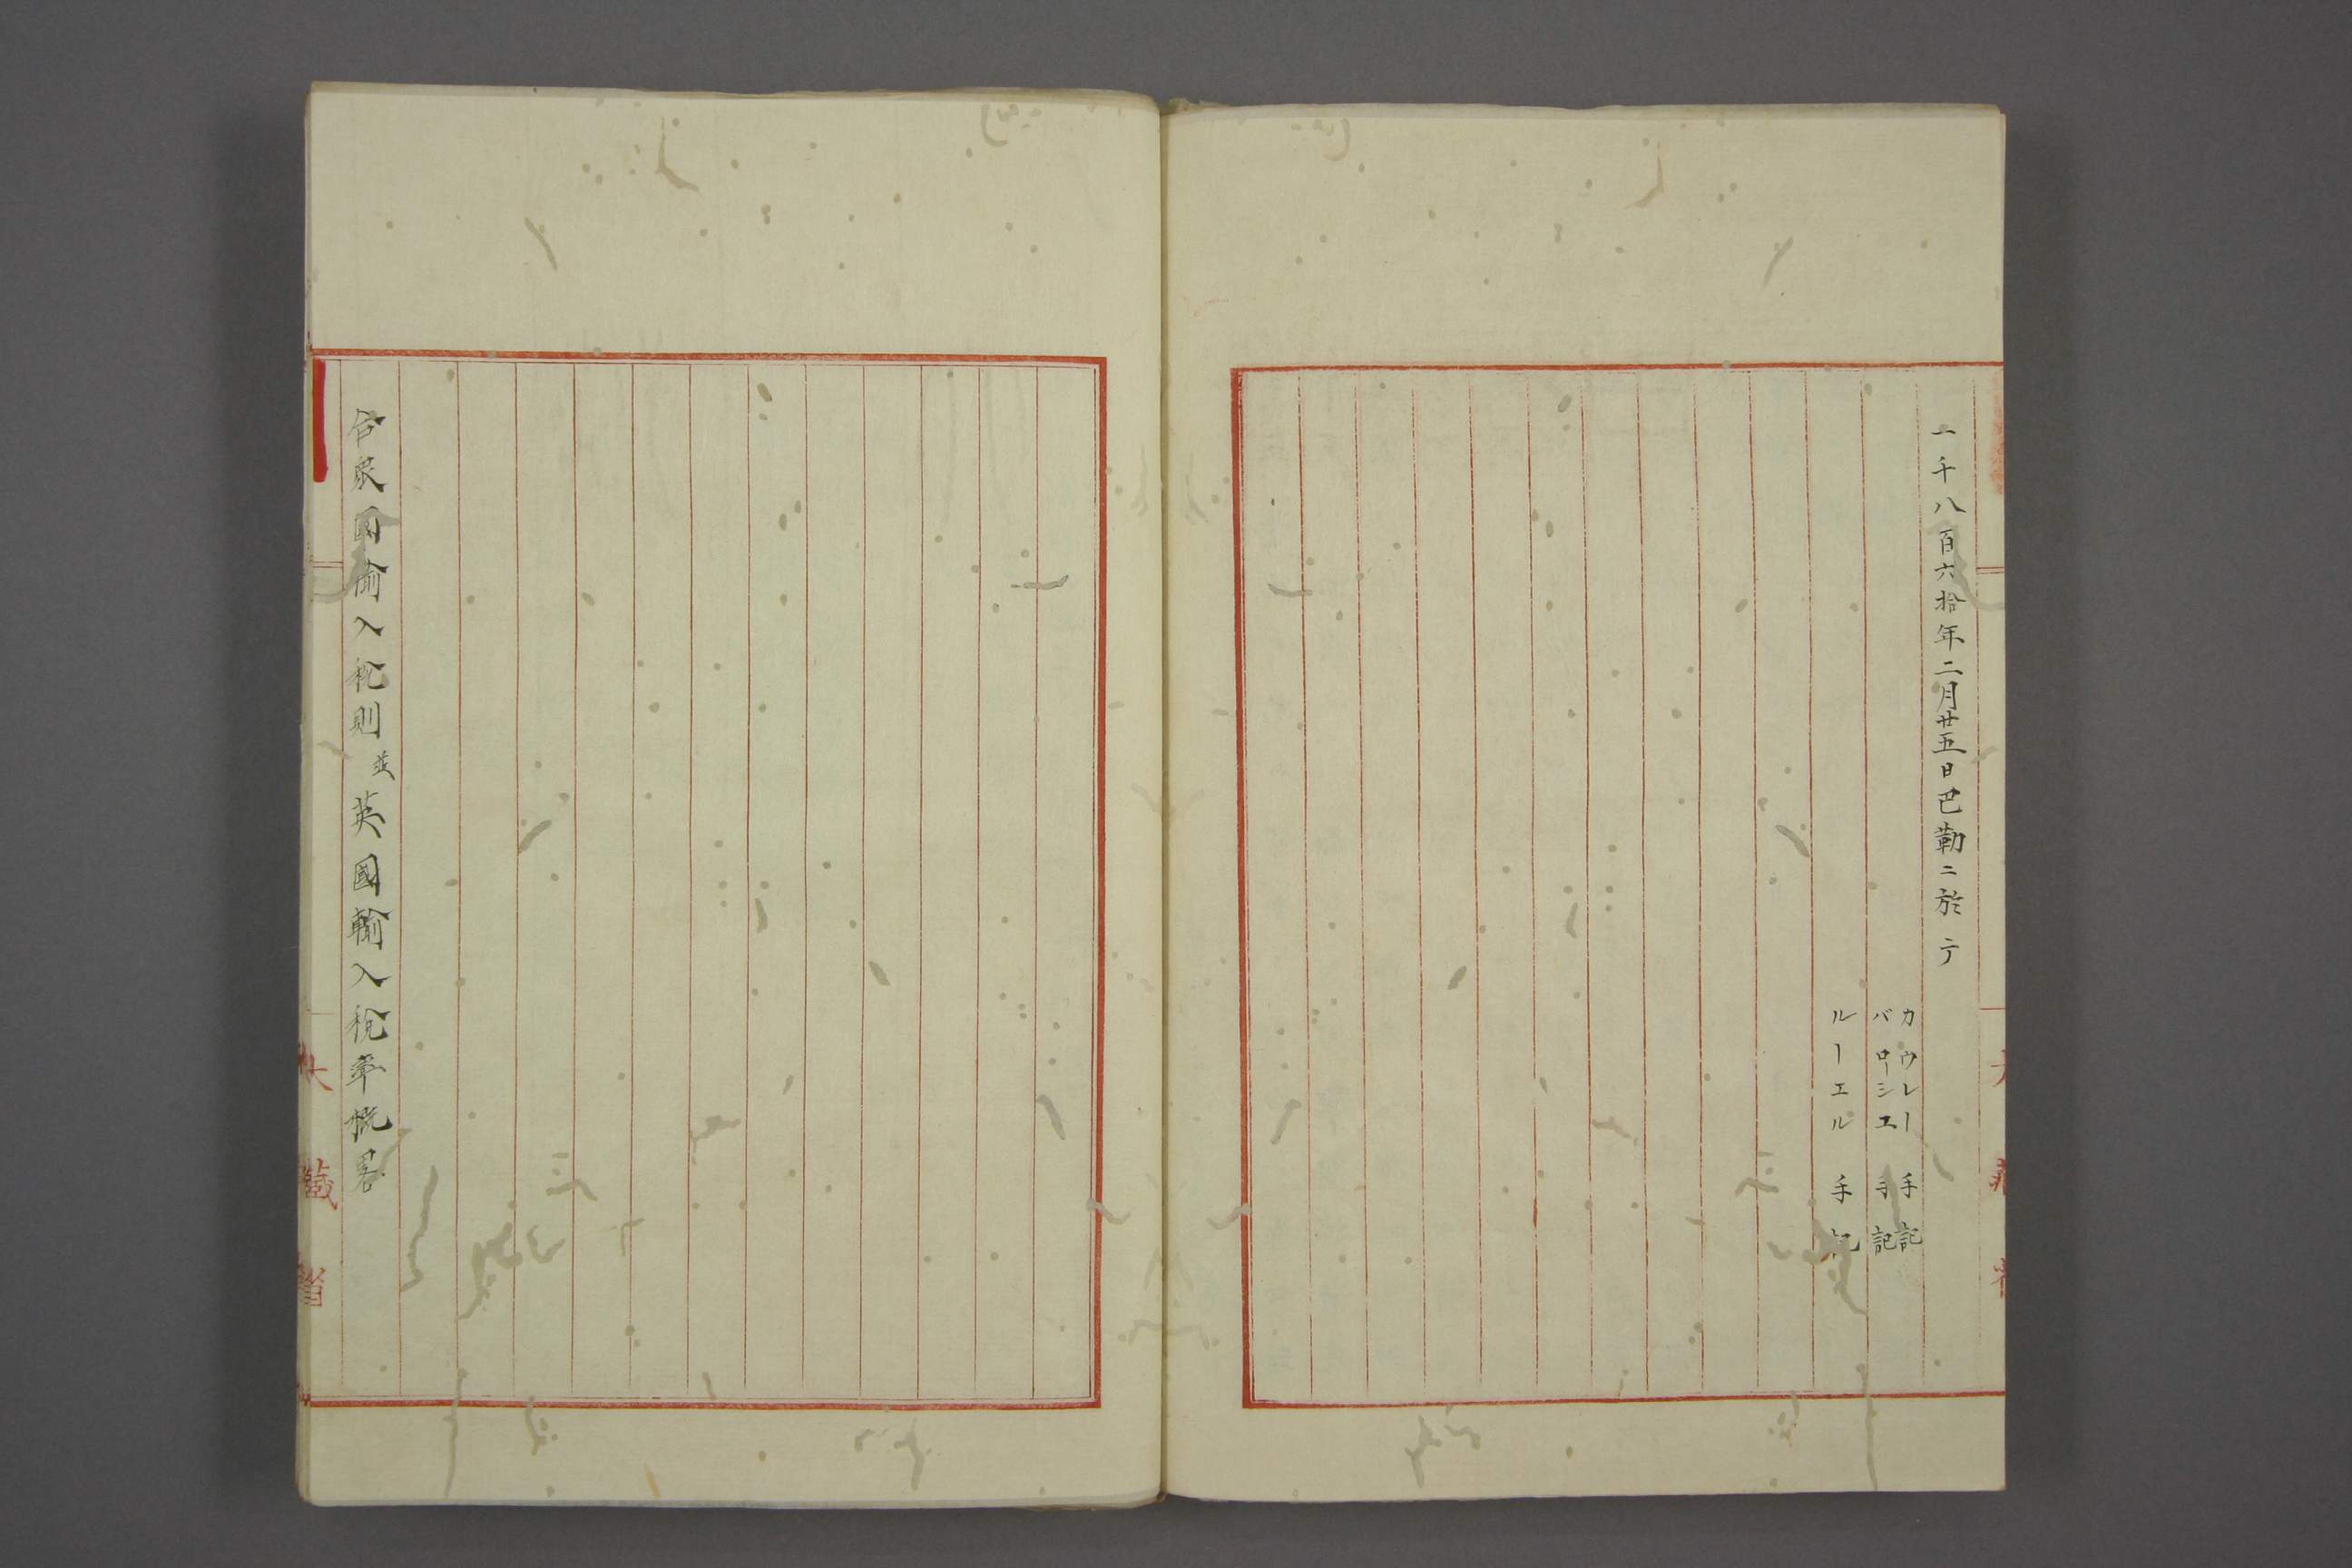 一千八百六拾年二月廿五日巴勒ニ於テ
カウレー 手記
バローシエ 手記
ルーエル 手記
合衆國輸入税則並英國輸入税率概畧
大藏省